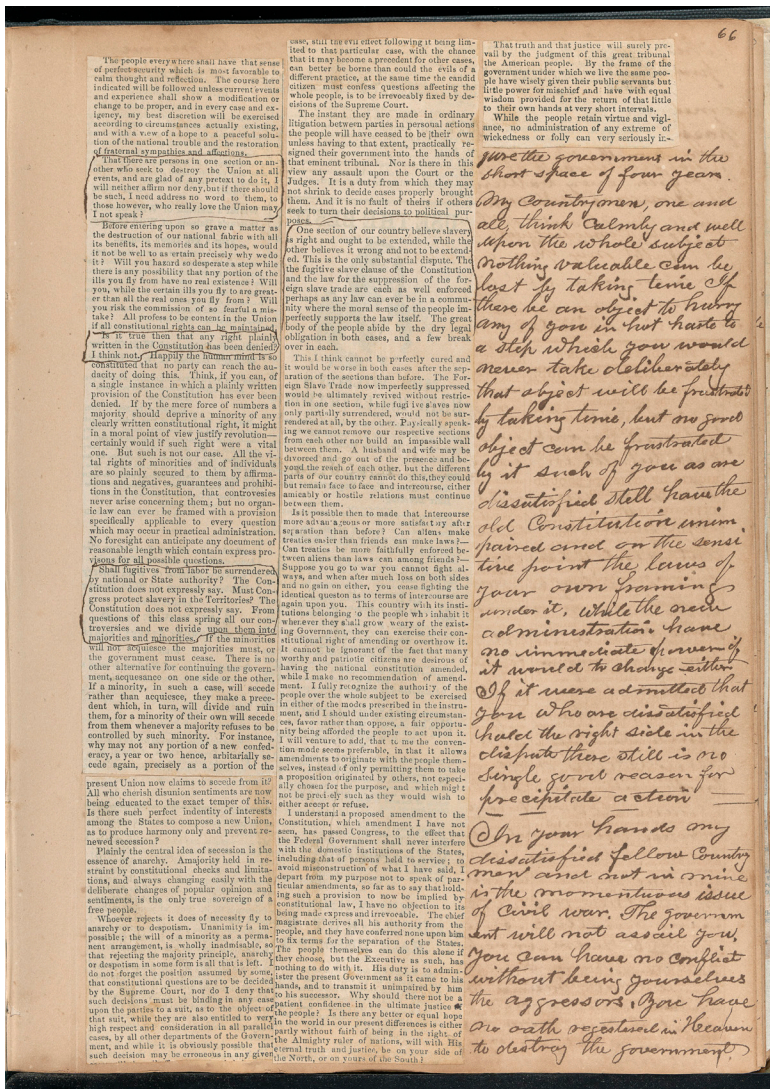 66
The people everywhere shall have that sense
of perfect security which is most favorable to
calm thought and reflection. The course here
indicated will be followed unless current events
and experience shall show a modification or
change to be proper, and in every case and ex-
igency, my best discretion will be exercised
according to circumstances actually existing,
and with a view of a hope to a peaceful solu-
tion of the national trouble and the restoration
of fraternal sympathies and affections.
That there are persons in one section or an-
other who seek to destroy the Union at all
events, and are glad of any pretext to do it, I
will neither affirm nor deny, but if there should
be such, I need address no word to them, to
those however, who really love the Union may
I not speak?
Before entering upon so grave a matter as
the destruction of our national fabric with all
its benefits, its memories and its hopes, would
it not be well to as certain precisely why we do
it? Will you hazard so desperate a step while
there is any possibility that any portion of the
ills you fly from have no real existence? Will
you, while the certain ills you fly to are great-
er than all the real ones you fly from? Will
you risk the commission of so fearful a mis-
take? All profess to be content in the Union
if all constitutional rights can be maintained.
Is it true then that any right plainly
written in the Constitution has been denied?
I think not. Happily the human mind is so
constituted that no party can reach the au-
dacity of doing this. Think, if you can, of
a single instance in which a plainly written
provision of the Constitution has ever been
denied. If by the mere force of numbers a
majority should deprive a minority of any
clearly written constitutional right, it might
in a moral point of view justify revolution—
certainly would if such right were a vital
one. But such is not our case. All the vi-
tal rights of minorities and of individuals
are so plainly secured to them by affirma-
tions and negatives, guarantees and prohibi-
tions in the Constitution, that controvesies
never arise concerning them; but no organ-
ic law can ever be framed with a provision
specifically applicable to every question
which may occur in practical administration.
No foresight can anticipate any document of
reasonable length which contain express pro-
visons for all possible questions.
Shall fugitives from labor be surrendered
by national or State authority? The Con-
stitution does not expressly say. Must Con-
gress protect slavery in the Territories? The
Constitution does not expressly say. From
questions of this class spring all our con-
troversies and we divide upon them into
majorities and minorities. If the minorities
will not acquiesce the majorities must, or
the government must cease. There is no
other alternative for continuing the govern-
ment, acquesance on one side or the other.
If a minority, in such a case, will secede
rather than acquiesce, they make a prece-
dent which, in turn, will divide and ruin
them, for a minority of their own will secede
from them whenever a majority refuses to be
controlled by such minority. For instance,
why may not any portion of a new confed-
eracy, a year or two hence, arbitarially se-
cede again, precisely as a portion of the
present Union now claims to secede from it?
All who cherish disunion sentiments are now
being educated to the exact temper of this.
Is there such perfect indentity of interests
among the States to compose a new Union,
as to produce harmony only and prevent re-
newed secession?
Plainly the central idea of secession is the
essence of anarchy. Amajority held in re-
straint by constitutional checks and limita-
tions, and always changing easily with the
deliberate changes of popular opinion and
sentiments, is the only true sovereign of a
free people.
Whoever rejects it does of necessity fly to
anarchy or to despotism. Unanimity is im-
possible; the will of a minority as a perma-
nent arrangement, is wholly inadmisable, so
that rejecting the majority principle, anarchy
or despotism in some form is all that is left. I
do not forget the position assumed by some,
that constitutional questions are to be decided
by the Supreme Court, nor do I deny that
such decisions must be binding in any case
upon the parties to a suit, as to the object of
that suit, while they are also entitled to very
high respect and consideration in all parallel
cases, by all other departments of the Govern-
ment, and while it is obviously possible that
such decision may be erroneous in any given
case, still the evil effect following it being lim-
ited to that particular case, with the chance
that it may become a precedent for other cases,
can better be borne than could the evils of a
different practice, at the same time the candid
citizen must confess questions affecting the
whole people, is to be irrevocably fixed by de-
cisions of the Supreme Court.
The instant they are made in ordinary
litigation between parties in personal actions
the people will have ceased to be their own
unless having to that extent, practically re-
signed their government into the hands of
that eminent tribunal. Nor is there in this
view any assault upon the Court or the
Judges. It is a duty from which they may
not shrink to decide cases properly brought
them. And it is no fault of theirs if others
seek to turn their decisions to political pur-
poses.
One section of our country believe slavery
is right and ought to be extended, while the
other believes it wrong and not to be extend-
ed. This is the only substantial dispute. The
fugitive slave clause of the Constitution
and the law for the suppression of the for-
eign slave trade are each as well enforced
perhaps as any law can ever be in a commu-
nity where the moral sense of the people im-
perfectly supports the law itself. The great
body of the people abide by the dry legal
obligation in both cases, and a few break
over in each.
This I think cannot be perfectly cured and
it would be worse in both cases after the sep-
aration of the sections than before. The For-
eign Slave Trade now imperfectly suppressed
would be ultimately revived without restric-
tion in one section, while fugitive slaves now
only partially surrendered, would not be sur-
rendered at all, by the other. Physically speak-
ing we cannot remove our respective sections
from each other nor build an impassible wall
between them. A husband and wife may be
divorced and go out of the presence and be-
yond the reach of each other, but the different
parts of our country cannot do this, they could
but remain face to face and intercourse, either
amicably or hostile relations must continue
between them.
Is it possible then to made that intercourse
more advantageous or more satisfactory after
separation than before? Can aliens make
treaties easier than friends can make laws?—
Can treaties be more faithfully enforced be-
tween aliens than laws can among friends?—
Suppose you go to war you cannot fight al-
ways, and when after much loss on both sides
and no gain on either, you cease fighting the
identical queston as to terms of intercourse are
again upon you. This country with its insti-
tutions belonging to the people who inhabit it
whenever they shall grow weary of the exist-
ing Government, they can exercise their con-
stitutional right of amending or overthrow it.
It cannot be ignorant of the fact that many
worthy and patriotic citizens are desirous of
having the national constitution amended,
while I make no recommendation of amend-
ment. I fully recognize the authority of the
people over the whole subject to be exercised
in either of the modes prescribed in the instru-
ment, and I should under existing circumstan-
ces, favor rather than oppose, a fair opportu-
nity being afforded the people to act upon it.
I will venture to add, that to me the conven-
tion mode seems preferable, in that it allows
amendments to originate with the people them-
selves, instead of only permitting them to take
a proposition originated by others, not especi-
ally chosen for the purpose, and which might
not be precisely such as they would wish to
either accept or refuse.
I understand a proposed amendment to the
Constitution, which amendment I have not
seen, has passed Congress, to the effect that
the Federal Government shall never interfere
with the domestic institutions of the States,
including that of persons held to service; to
avoid misconstruction of what I have said, I
depart from my purpose not to speak of par-
ticular amendments, so far as to say that hold-
ing such a provision to now be implied by
constitutional law, I have no objection to its
being made express and irrevocable. The chief
magistrate derives all his authority from the
people, and they have conferred none upon him
to fix terms for the separation of the States.
The people themselves can do this alone if
they choose, but the Executive as such, has
nothing to do with it. His duty is to admin-
ister the present Government as it came to his
hands, and to transmit it unimpaired by him
to his successor. Why should there not be a
patient confidence in the ultimate justice of
the people? Is there any better or equal hope
in the world in our present differences is either
partly without faith of being in the right, of
the Almighty ruler of nations, will with His
eternal truth and justice, be on your side of
the North, or on yours of the South?
That truth and that justice will surely pre-
vail by the judgment of this great tribunal
the American people. By the frame of the
government under which we live the same peo-
ple have wisely given their public servants but
little power for mischief and have with equal
wisdom provided for the return of that little
to their own hands at very short intervals.
While the people retain virtue and vigil-
ance, no administration of any extreme of
wickedness or folly can very seriously in-
jure the government in the
short space of four years.
My Countrymen, one and
all, think calmly and well
upon the whole subject
nothing valuable can be
lost by taking time If
there be an object to hurry
any of you in hot haste to
a step which you would
never take deliberately
that object will be frustrated
by taking time, but no good
object can be frustrated
by it such of you as are
dissatisfied still have the
old Constitution unim
paired and on the sensi
tive point the laws of
your own framing
under it, while the new
administration have
no immediate power if
it would to change either
If it were admitted that
you who are dissatisfied
hold the right side in the
dispute there still is no
single good reason for
precipitate action
In your hands my
dissatisfied fellow Country
men and not in mine
is the momentuous issue
of Civil war. The governm
ent will not assail you,
you can have no conflict
without being yourselves
the aggressors. You have
no oath registered in Heaven
to destroy the government,